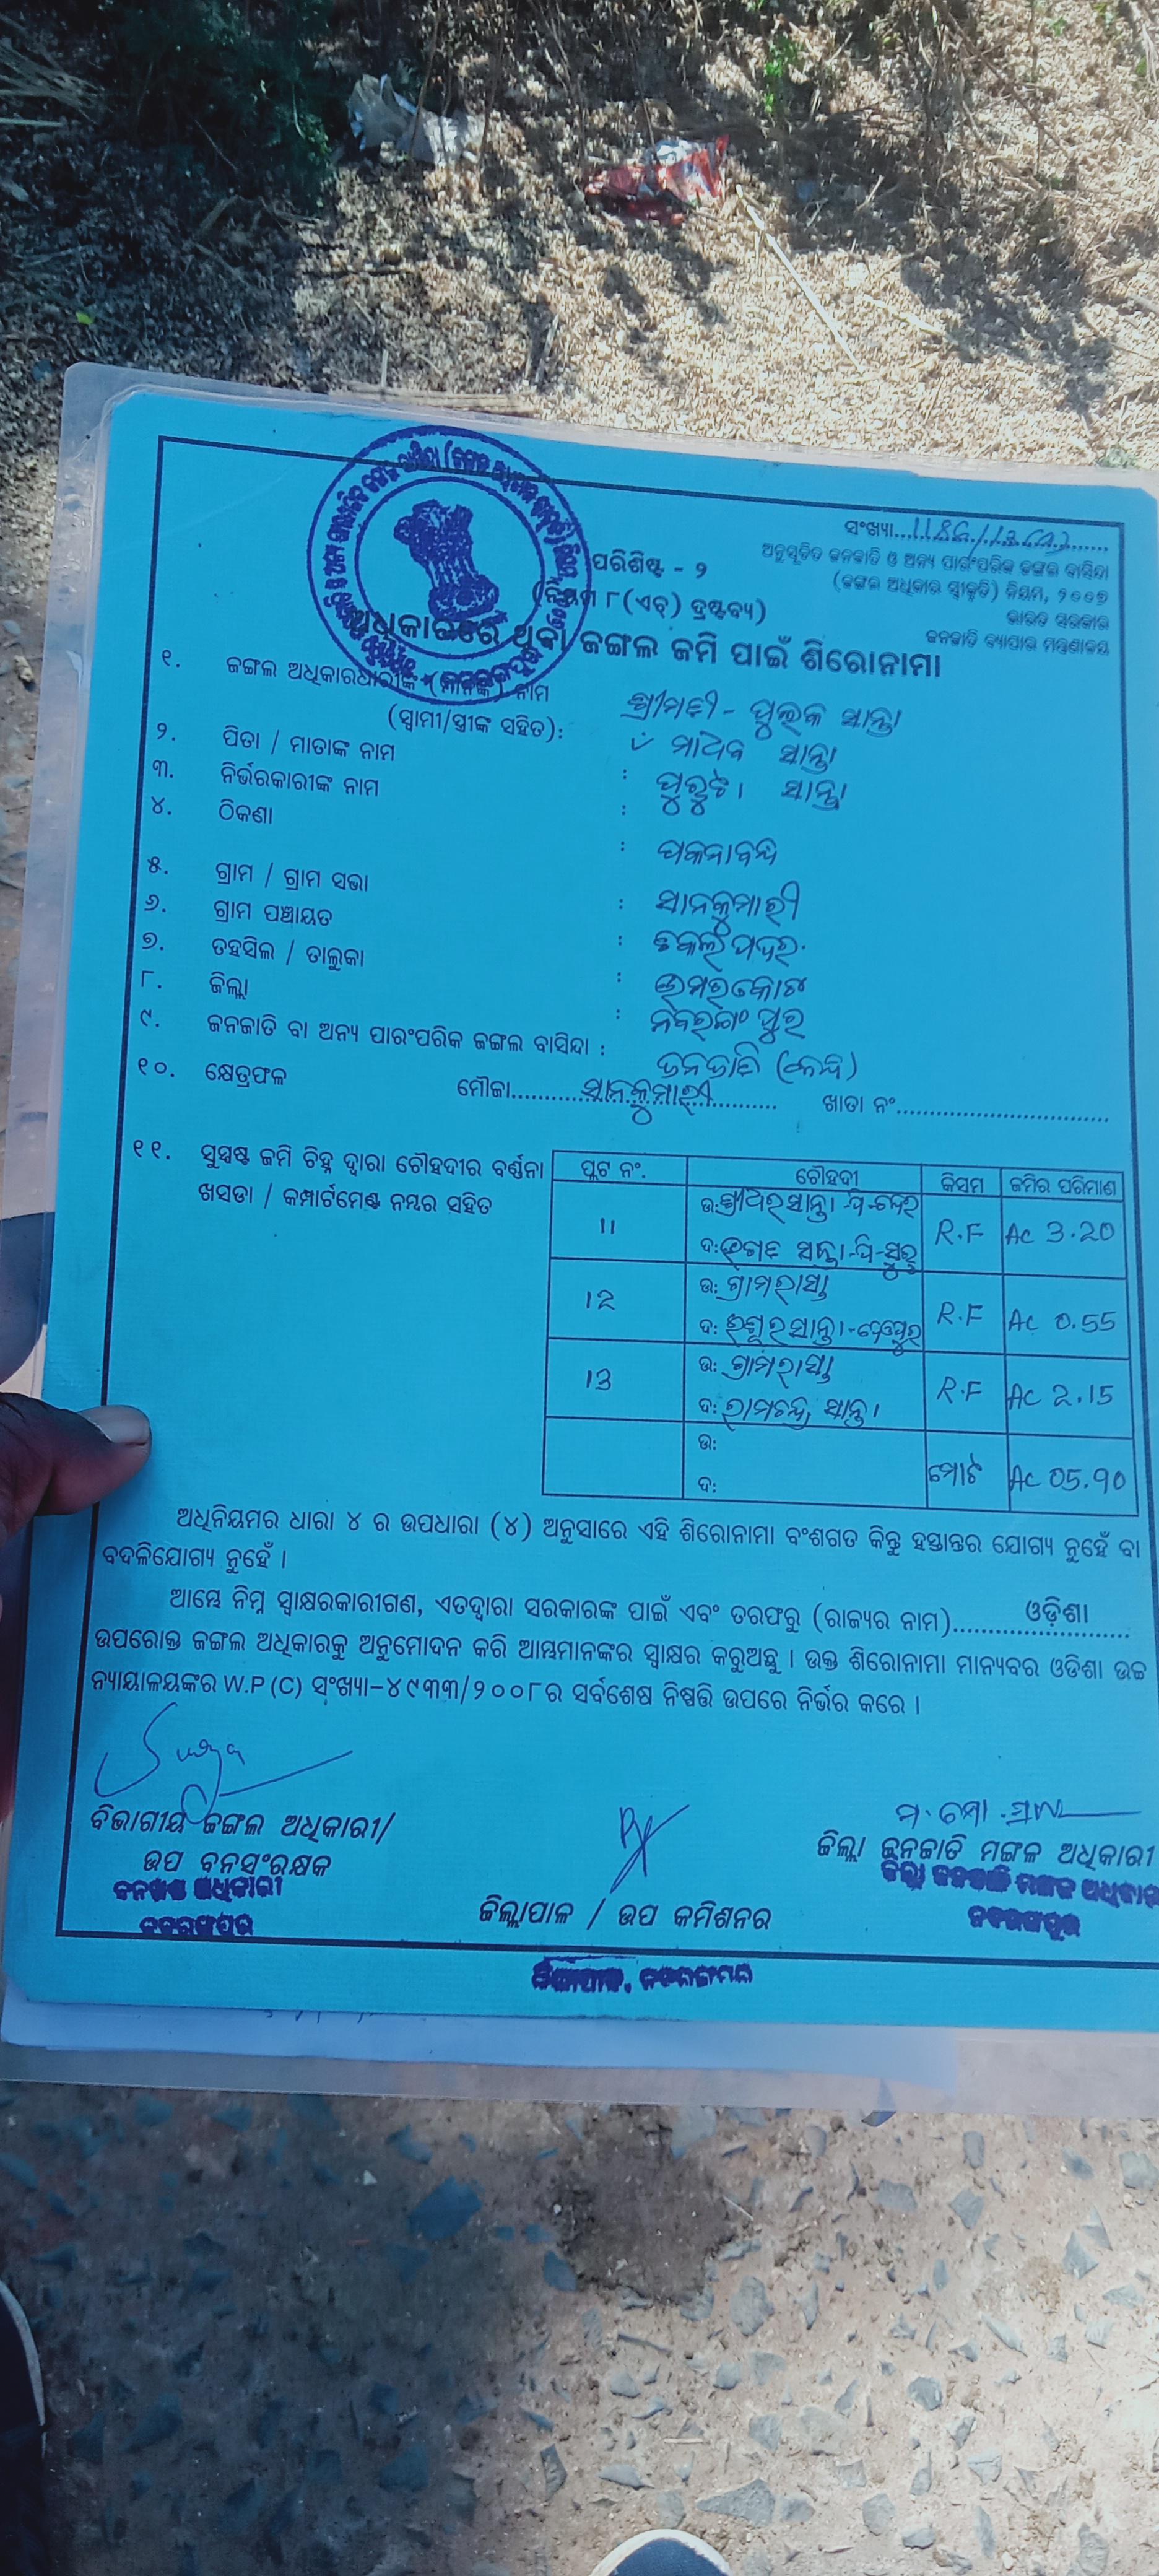 ସଂଖ୍ୟା
ଅନୁସୂଚିତ ଜନଜାତି ଓ ଅନ୍ୟ ପାରଂପରିକ ଜଙ୍ଗଲ ବାସିନ୍ଦା
(ଜଙ୍ଗଲ ଅଧିକାର ସ୍ୱୀକୃତି) ନିୟମ, ୨୦୦୭
ଭାରତ ସରକାର
ଜନଜାତି ବ୍ୟାପାର ମନ୍ତ୍ରଣାଳୟ
ପରିଶିଷ୍ଟ - ୨
(ନିୟମ ୮(ଏଚ୍) ଦ୍ରଷ୍ଟବ୍ୟ)
ଅଧିକାରରେ ଥିବା ଜଙ୍ଗଲ ଜମି ପାଇଁ ଶିରୋନାମା
୧. ଜଙ୍ଗଲ ଅଧିକାରଧାରୀଙ୍କ (ମାନଙ୍କ) ନାମ
(ସ୍ୱାମୀ/ସ୍ତ୍ରୀଙ୍କ ସହିତ): ଶ୍ରୀମତୀ - ସାନ୍ତା
୨. ପିତା / ମାତାଙ୍କ ନାମ : ସାନ୍ତା
୩. ନିର୍ଭରକାରୀଙ୍କ ନାମ : ସାନ୍ତା
୪. ଠିକଣା :
୫. ଗ୍ରାମ / ଗ୍ରାମ ସଭା : ସାନକୁମାରୀ
୬. ଗ୍ରାମ ପଞ୍ଚାୟତ :
୭. ତହସିଲ / ତାଲୁକା : ଉମରକୋଟ
୮. ଜିଲ୍ଲା : ନବରଙ୍ଗପୁର
୯. ଜନଜାତି ବା ଅନ୍ୟ ପାରଂପରିକ ଜଙ୍ଗଲ ବାସିନ୍ଦା : ଜନଜାତି
୧୦. କ୍ଷେତ୍ରଫଳ ମୌଜା ସାନକୁମାରୀ ଖାତା ନଂ
୧୧. ସୁସ୍ପଷ୍ଟ ଜମି ଚିହ୍ନ ଦ୍ୱାରା ଚୌହଦୀର ବର୍ଣ୍ଣନା
ଖସଡା / କମ୍ପାର୍ଟମେଣ୍ଟ ନମ୍ବର ସହିତ
ପ୍ଲଟ ନଂ. ଚୌହଦୀ କିସମ ଜମିର ପରିମାଣ
11 ଉ: ସାନ୍ତା R.F Ac 3.20
ଦ: ସାନ୍ତା
12 ଉ: ଗ୍ରାମରାସ୍ତା R.F Ac 0.55
ଦ: ସାନ୍ତା
13 ଉ: ଗ୍ରାମରାସ୍ତା R.F Ac 2.15
ଦ: ରାମଚନ୍ଦ୍ର ସାନ୍ତା
ଉ: ମୋଟ Ac 05.90
ଦ:
ଅଧିନିୟମର ଧାରା ୪ ର ଉପଧାରା (୪) ଅନୁସାରେ ଏହି ଶିରୋନାମା ବଂଶଗତ କିନ୍ତୁ ହସ୍ତାନ୍ତର ଯୋଗ୍ୟ ନୁହେଁ ବା
ବଦଳିଯୋଗ୍ୟ ନୁହେଁ ।
ଆମ୍ଭେ ନିମ୍ନ ସ୍ୱାକ୍ଷରକାରୀଗଣ, ଏତଦ୍ଦ୍ୱାରା ସରକାରଙ୍କ ପାଇଁ ଏବଂ ତରଫରୁ (ରାଜ୍ୟର ନାମ) ଓଡ଼ିଶା
ଉପରୋକ୍ତ ଜଙ୍ଗଲ ଅଧିକାରକୁ ଅନୁମୋଦନ କରି ଆମ୍ଭମାନଙ୍କର ସ୍ୱାକ୍ଷର କରୁଅଛୁ । ଉକ୍ତ ଶିରୋନାମା ମାନ୍ୟବର ଓଡିଶା ଉଚ୍ଚ
ନ୍ୟାୟାଳୟଙ୍କର W.P (C) ସଂଖ୍ୟା-୪୯୩୩/୨୦୦୮ର ସର୍ବଶେଷ ନିଷ୍ପତ୍ତି ଉପରେ ନିର୍ଭର କରେ ।
ବିଭାଗୀୟ ଜଙ୍ଗଲ ଅଧିକାରୀ/
ଉପ ବନସଂରକ୍ଷକ
ବନଖଣ୍ଡ ଅଧିକାରୀ
ନବରଙ୍ଗପୁର
ଜିଲ୍ଲାପାଳ / ଉପ କମିଶନର
ଜିଲ୍ଲାପାଳ, ନବରଙ୍ଗପୁର
ଜିଲ୍ଲା ଜନଜାତି ମଙ୍ଗଳ ଅଧିକାରୀ
ଜିଲ୍ଲା ଜନଜାତି ମଙ୍ଗଳ ଅଧିକାରୀ
ନବରଙ୍ଗପୁର